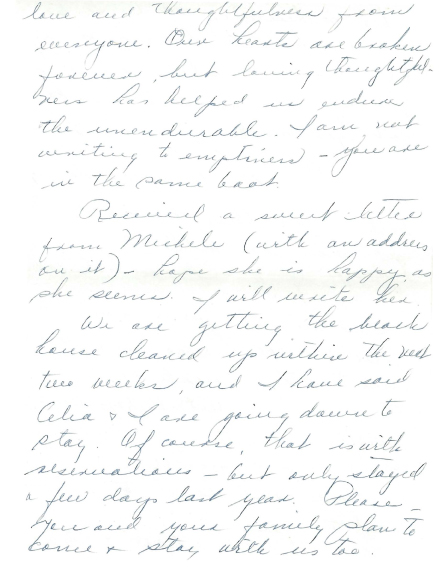 love and thoughtfulness from
everyone. Our hearts are broken
forever, but loving thoughtful-
ness has helped us endure
the unendurable. I am not
writing to emptiness – you are
in the same boat.
Received a sweet letter
from Michele (with an address
on it) – hope she is happy as
she seems. I will write her.
We are getting the beach
house cleaned up within the next
two weeks, and I have said
Celia & I are going down to
stay. Of course, that is with
reservations – but only stayed
a few days last year. Please –
you and your family plan to
come & stay with us too.